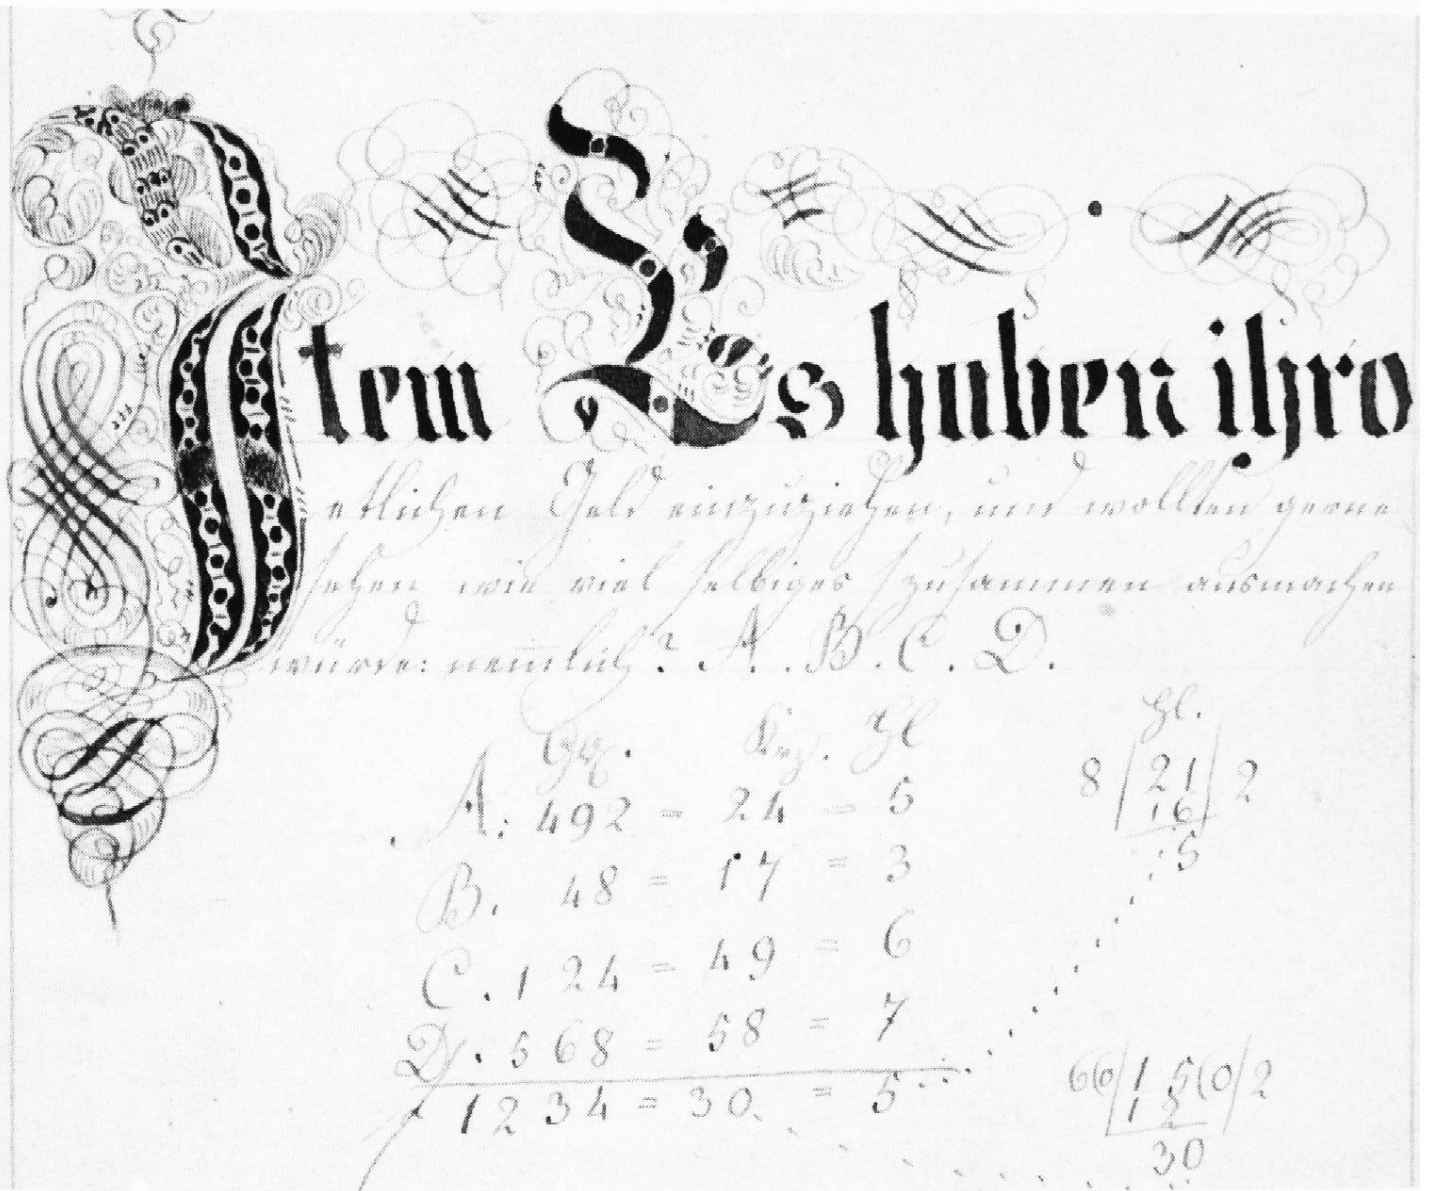 Item Es huben ihro
etlichen Geld einzuziehen, und wollten gerne
sehen wie viel selbiges zusammen ausmachen
würde: nemlich? A. B. C. D.
Krz. Hl
A: 492 = 24 = 5
B. 48 = 17 = 3
C. 124 = 49 = 6
D. 568 = 58 = 7
1234 = 30 = 5
Hl.
8 / 21 / 2
16
5
/ 1 5(0 / 2
1 2
30